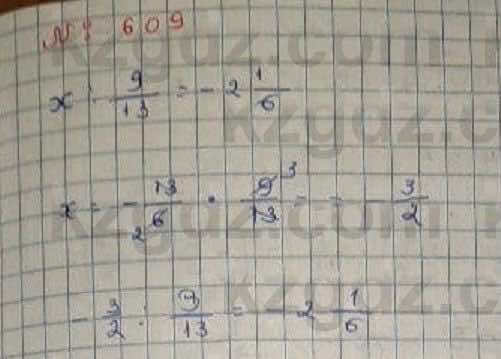 № 609
x : 9/13 = - 2 1/6
x = - 13/6 2 · 9/13 3 = - 3/2
- 3/2 : 9/13 = - 2 1/6
kzgdz.com